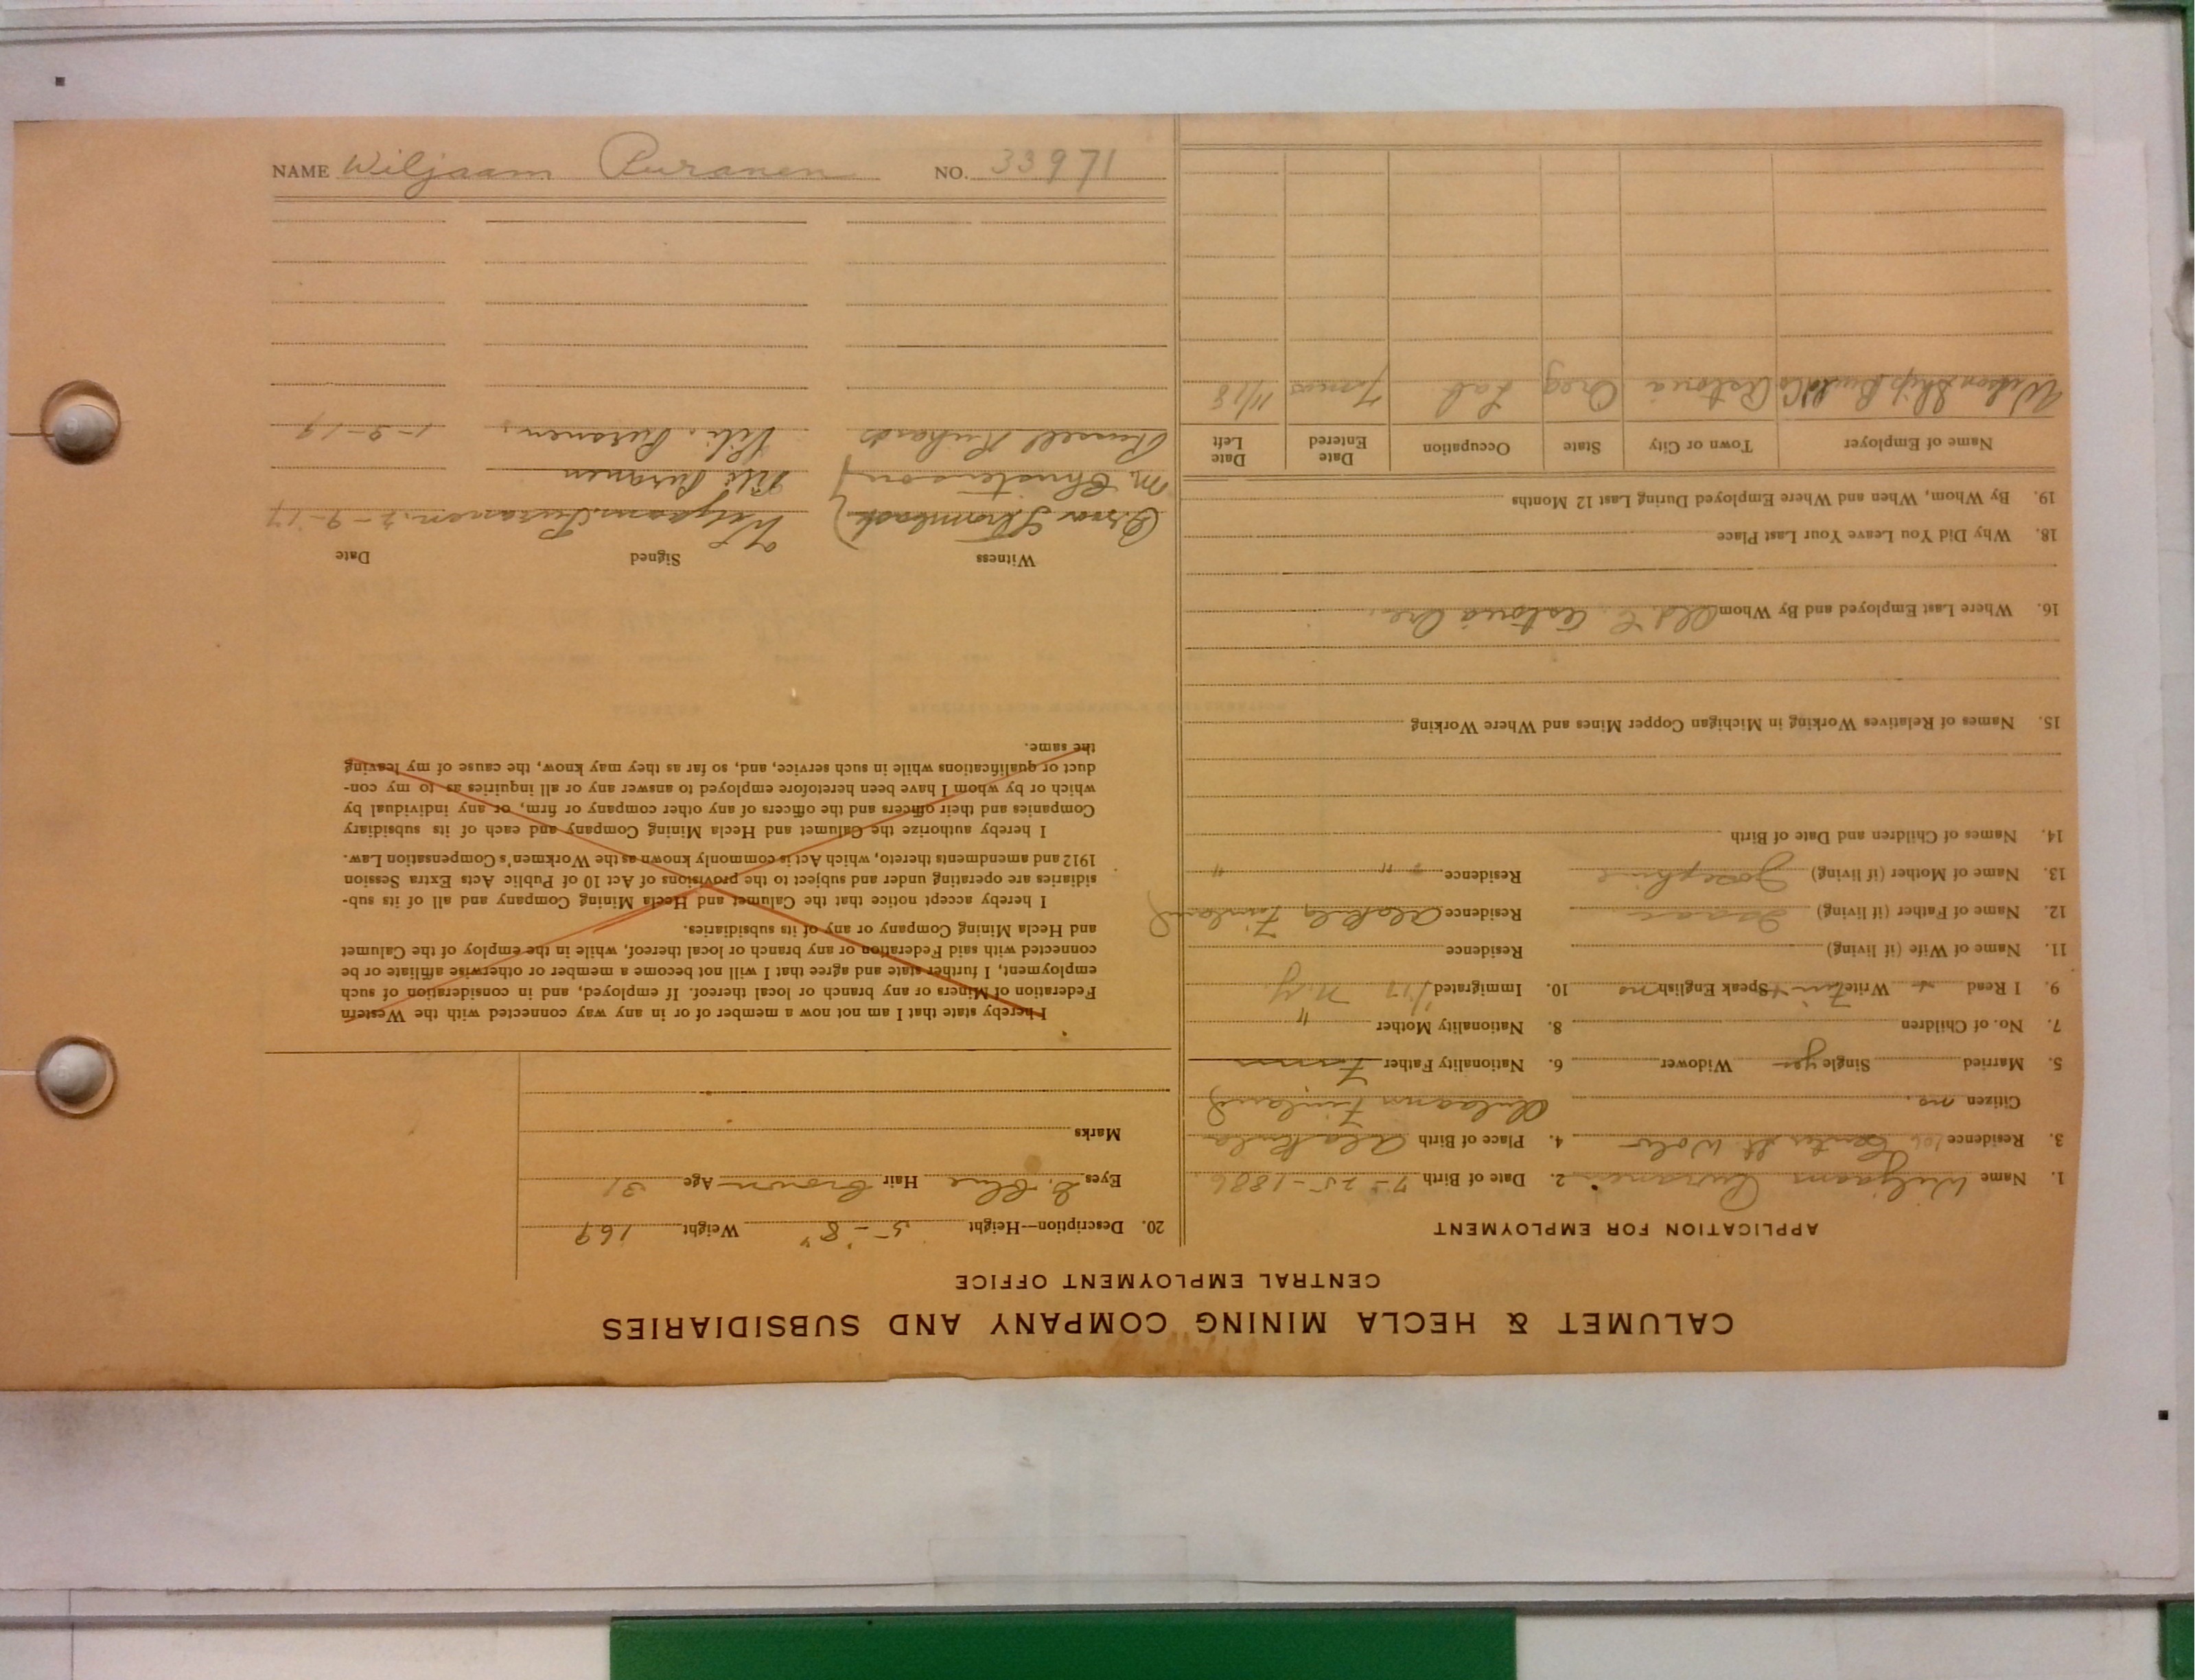 NAME Wiljaam Puranen NO. 33971
CALUMET & HECLA MINING COMPANY AND SUBSIDIARIES
CENTRAL EMPLOYMENT OFFICE
APPLICATION FOR EMPLOYMENT
1. Name Wiljaam Puranen 2. Date of Birth 7-25-1886
3. Residence Center St. Wolv 4. Place of Birth Alakyla
Citizen no. Finland
5. Married Single yes Widower 6. Nationality Father Finn
7. No. of Children 8. Nationality Mother "
9. I Read + Write Finn + Speak English no 10. Immigrated 1/17 N.Y.
11. Name of Wife (if living) Residence
12. Name of Father (if living) Isaac Residence Alakyla Finland
13. Name of Mother (if living) Josephine Residence " "
14. Names of Children and Date of Birth
15. Names of Relatives Working in Michigan Copper Mines and Where Working
16. Where Last Employed and By Whom Astoria Ore.
18. Why Did You Leave Your Last Place
19. By Whom, When and Where Employed During Last 12 Months
Name of Employer Town or City State Occupation Date Entered Date Left
Wilson Ship Build Co Astoria Oreg Lab 11/18
20. Description—Height 5-8" Weight 169
Eyes Blue Hair Brown Age 31
Marks
I hereby state that I am not now a member of or in any way connected with the Western
Federation of Miners or any branch or local thereof. If employed, and in consideration of such
employment, I further state and agree that I will not become a member or otherwise affiliate or be
connected with said Federation or any branch or local thereof, while in the employ of the Calumet
and Hecla Mining Company or any of its subsidiaries.
I hereby accept notice that the Calumet and Hecla Mining Company and all of its sub-
sidiaries are operating under and subject to the provisions of Act 10 of Public Acts Extra Session
1912 and amendments thereto, which Act is commonly known as the Workmen's Compensation Law.
I hereby authorize the Calumet and Hecla Mining Company and each of its subsidiary
Companies and their officers and the officers of any other company or firm, or any individual by
which or by whom I have been heretofore employed to answer any or all inquiries as to my con-
duct or qualifications while in such service, and, so far as they may know, the cause of my leaving
the same.
Witness Signed Date
Wiljaam Puranen. 2-9-'17
M. Christenson Vili Puranen
Russell Richards Vili. Puranen. 1-9-19